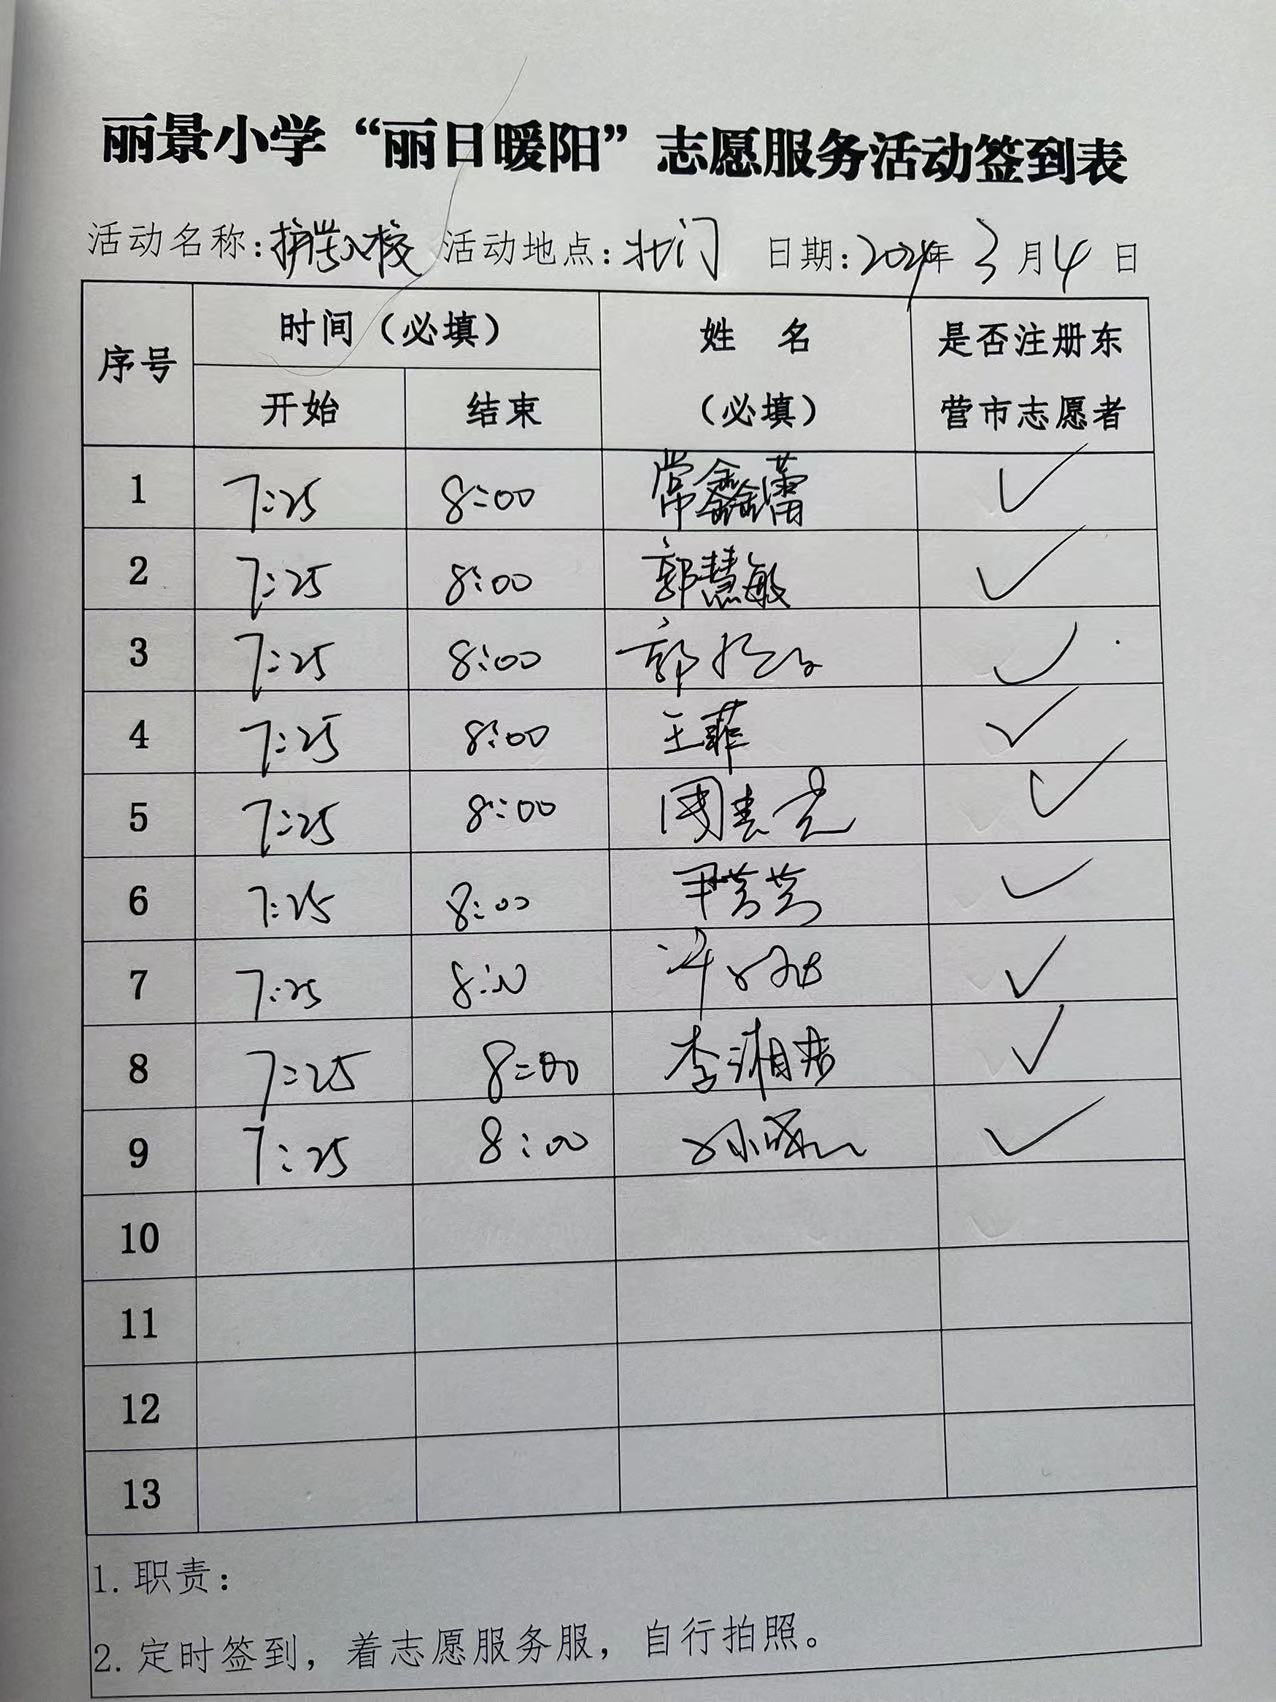 丽景小学“丽日暖阳”志愿服务活动签到表
活动名称:护学入校 活动地点:北门 日期:2024年3月4日
序号 时间（必填） 姓 名（必填） 是否注册东营市志愿者
开始 结束
1 7:25 8:00 常鑫蕾 ✓
2 7:25 8:00 郭慧敏 ✓
3 7:25 8:00 郭 ✓
4 7:25 8:00 王菲 ✓
5 7:25 8:00 ✓
6 7:25 8:00 尹芳芳 ✓
7 7:25 8:00 ✓
8 7:25 8:00 李湘 ✓
9 7:25 8:00 孙 ✓
10
11
12
13
1. 职责：
2. 定时签到，着志愿服务服，自行拍照。